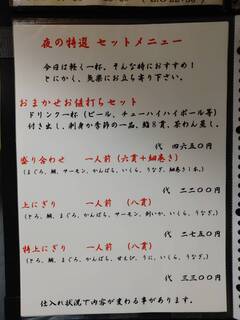 夜の特選 セットメニュー
今日は軽く一杯。そんな時におすすめ！
とにかく、気楽にお立ち寄り下さい。
おまかせお値打ちセット
ドリンク一杯（ビール、チューハイハイボール等）
付き出し、刺身か季節の一品、鮨５貫、茶わん蒸し。
代 ４６５０円
盛り合わせ 一人前（六貫＋細巻き）
（まぐろ、鯛、サーモン、かんぱち、いくら、うなぎ、細巻き１本。）
代 ２２００円
上にぎり 一人前 （八貫）
（とろ、鯛、まぐろ、かんぱち、サーモン、いくら、うなぎ。）
代 ２７５０円
特上にぎり 一人前 （八貫）
（とろ、鯛、まぐろ、かんぱち、うに、いくら、うなぎ。）
代 ３３００円
仕入れ状況で内容が変わる事があります。